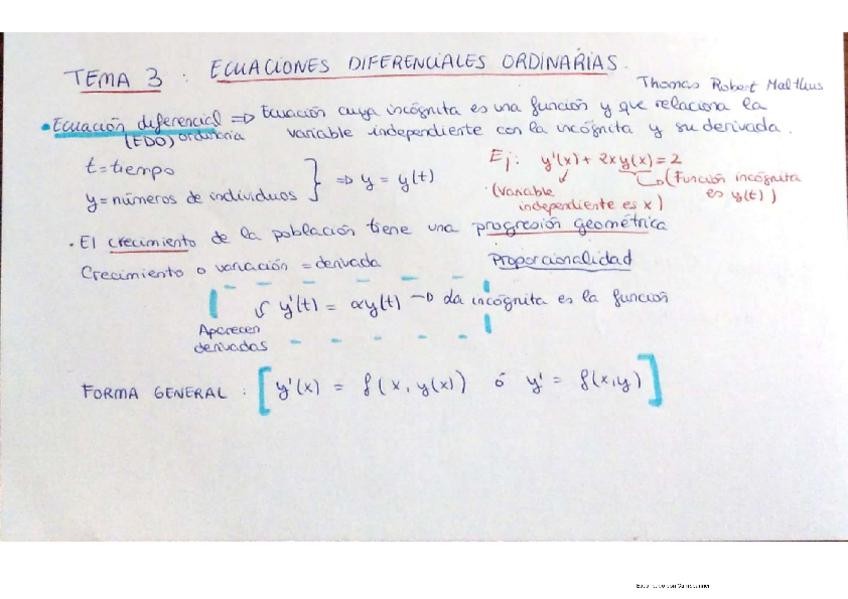 TEMA 3 : ECUACIONES DIFERENCIALES ORDINARIAS.
Thomas Robert Malthus
• Ecuación diferencial => Ecuación cuya incógnita es una función y que relaciona la
(EDO) ordinaria variable independiente con la incógnita y su derivada.
t = tiempo
y = números de individuos } => y = y(t)
Ej: y'(x) + 2x y(x) = 2
(Función incógnita
es y(t))
(Variable
independiente es x)
• El crecimiento de la población tiene una progresión geométrica
Crecimiento o variación = derivada
Proporcionalidad
y'(t) = αy(t) → la incógnita es la función
Aparecen
derivadas
FORMA GENERAL : [y'(x) = f(x, y(x)) ó y' = f(x,y)]